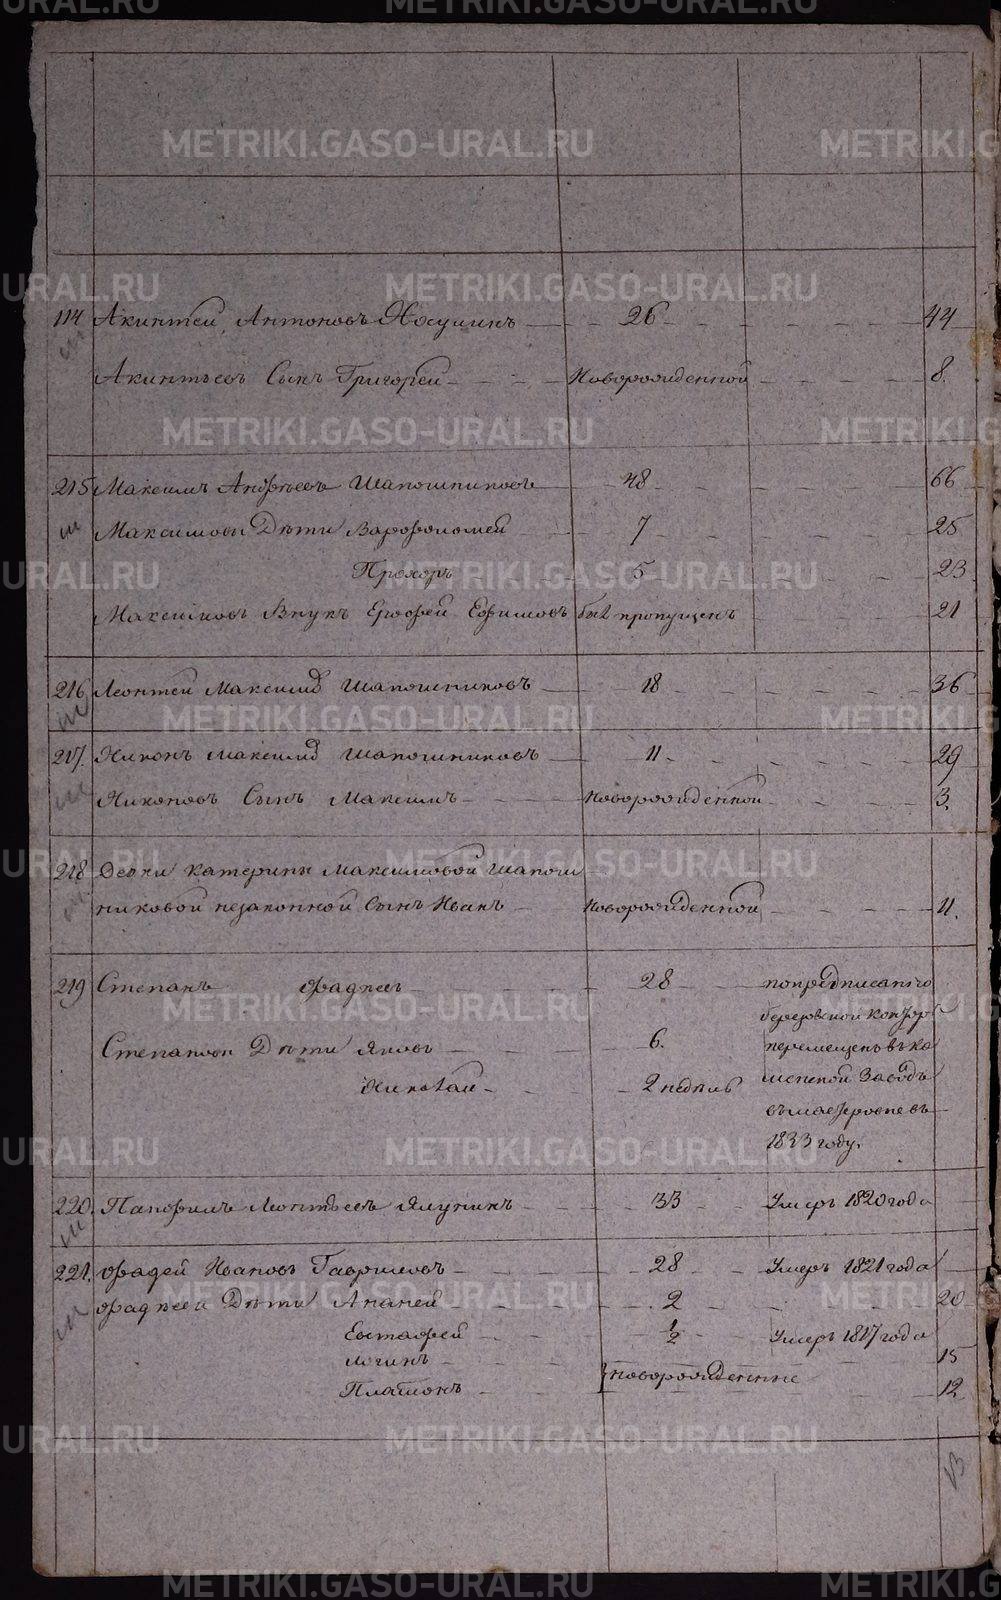 114 Акинтей Антоновъ 26 44
Акинтьевъ Сынъ Григорей Новорожденной 8.
215 Максимъ Андреевъ Шапошниковъ 48 66
Максимовы Дети Варфоломей 7 25
Прохоръ 5 23
Максимовъ Внукъ Ерофей Ефимовъ былъ пропущенъ 21
216 Леонтей Максимовъ Шапошниковъ 18 36
217. Никонъ Максимовъ Шапошниковъ 11. 29
Никоновъ Сынъ Максимъ Новорожденной 3.
218 Девки Катерины Максимовой Шапош
никовой незаконной Сынъ Иванъ Новорожденной 11.
219 Степанъ Фаддеев 28 по предписанію
березовской Контор
Степановы Дети Яковъ 6. перемещенъ въ ка
Николай 2 недель менской Заводъ
1833 году.
220. Панфилъ Леонтьевъ Ялунинъ 33 Умеръ 1820 года
221. Фадей Ивановъ Гавриловъ 28 Умеръ 1821 года
Фаддеевы Дети Ананей 2 20
Евстафей 1/2 Умеръ 1817 года
Логинъ } новорожденные 15
Платонъ 12
13
METRIKI.GASO-URAL.RU